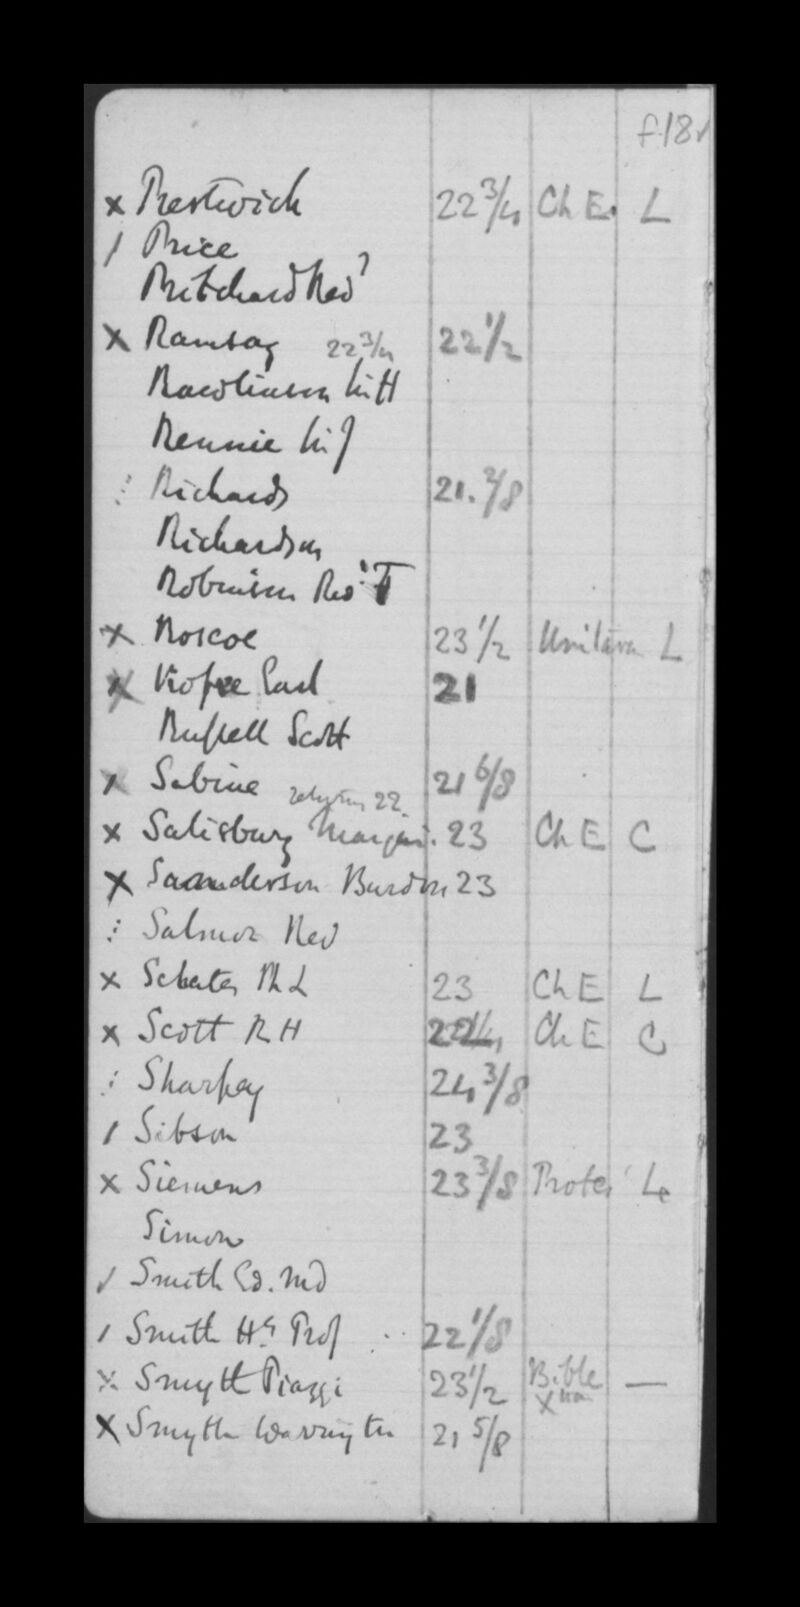 f.18r
x Prestwich 22 3/4 Ch E. L
/ Price
Pritchard Rev
x Ramsay 22 3/4 22 1/2
Rawlinson Sir H
Rennie Sir J
Richards 21. 2/8
Richardson
Robinson Rev T
x Roscoe 23 1/2 Unitarn L
x Rosse Earl 21
Russell Scott
x Sabine 22 21 6/8
x Salisbury Marquis. 23 Ch E C
x Saunderson Burdon 23
Salmon Rev
x Sclater P L 23 Ch E L
x Scott R H Ch E C
Sharpey 24 3/8
/ Sibson 23
x Siemens 23 3/8 Protes L
Simon
/ Smith Ed. MD
/ Smith Hy Prof 22 1/8
x Smyth Piazzi 23 1/2 Bible —
Xtian
x Smyth Warington 21 5/8